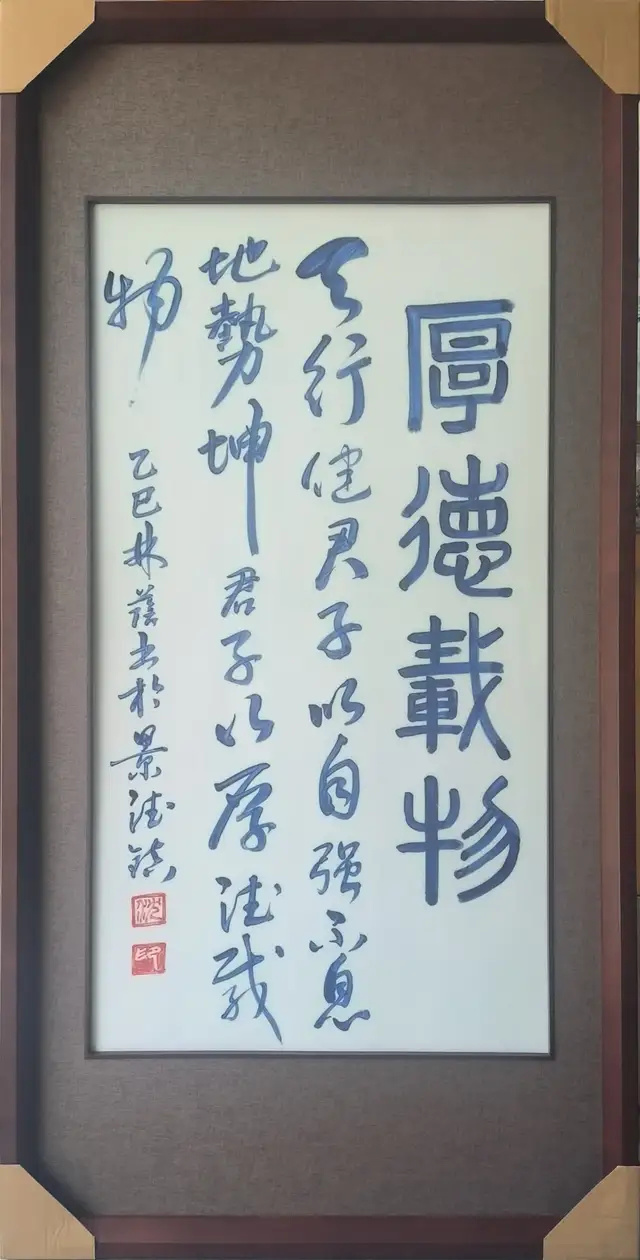 厚德載物
天行健君子以自强不息
地勢坤君子以厚德載
物
乙巳林蔭书於景德鎮
印